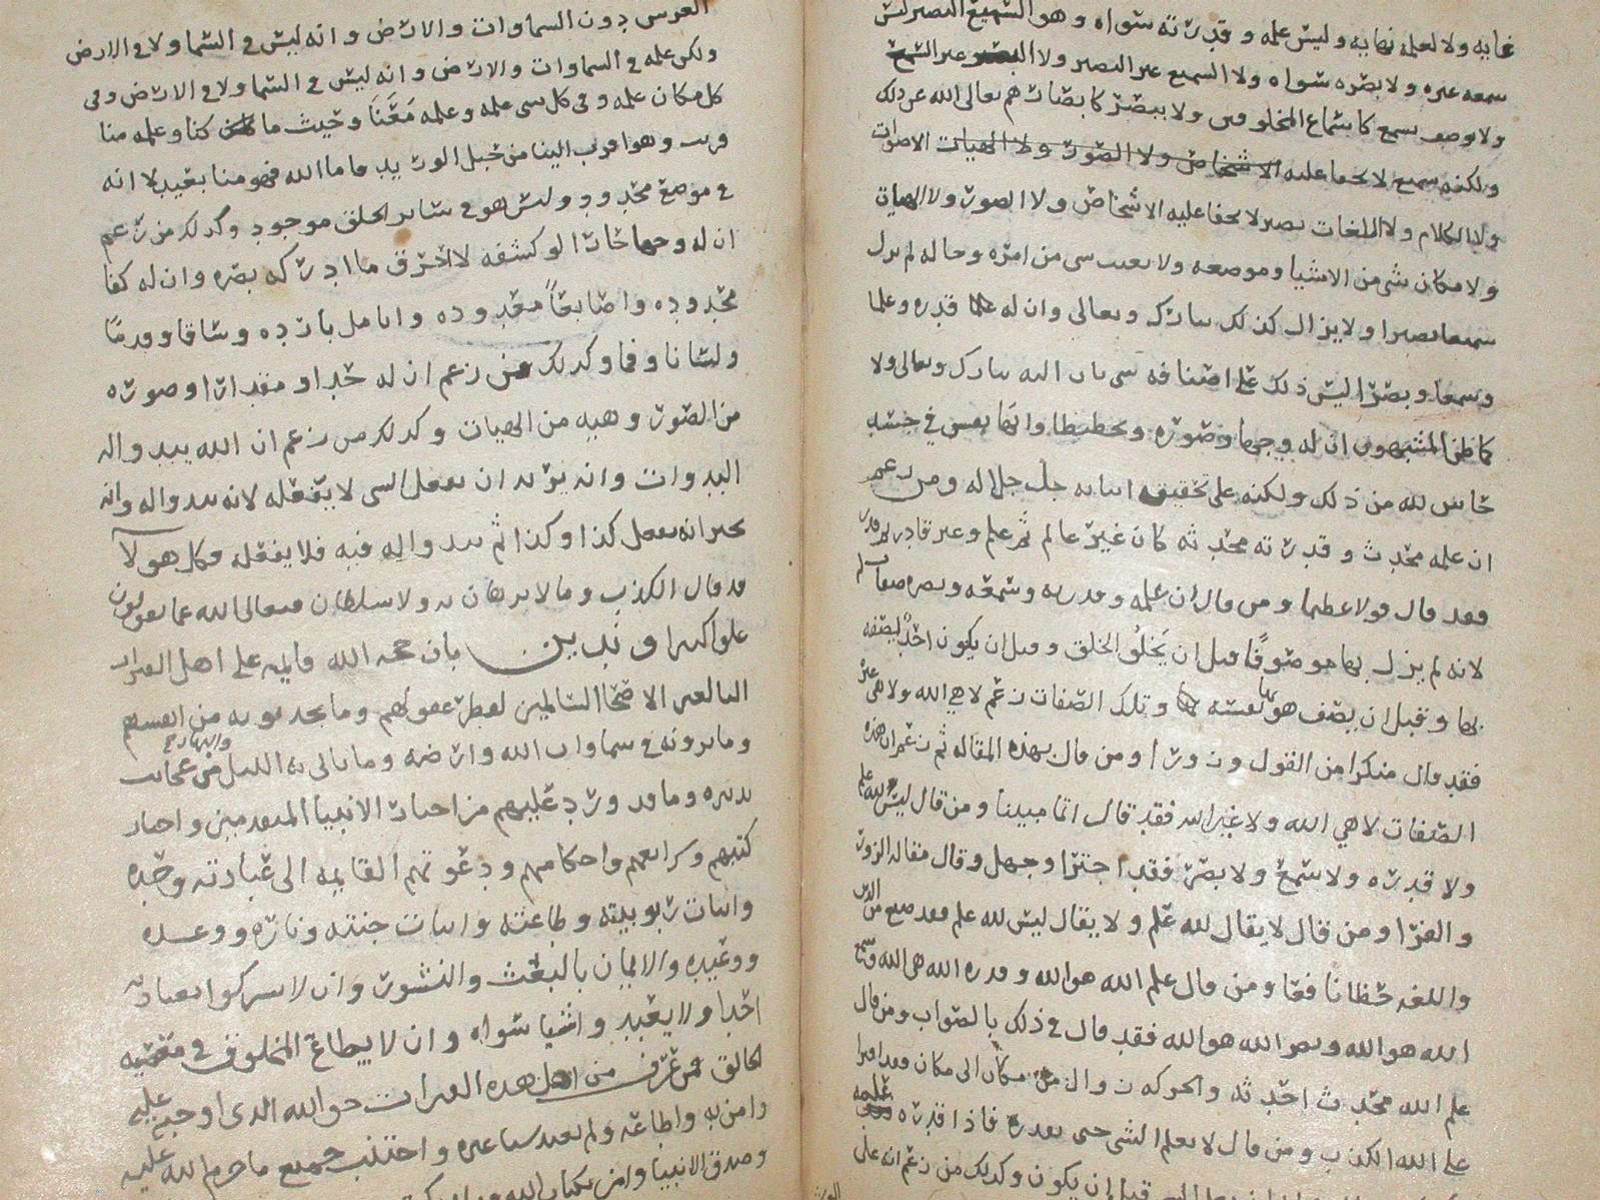 غايه ولا لعلمه نهايه وليس علمه وقدرته سواه وهو السميع البصير ليس
سمعه غيره ولا بصره سواه ولا السميع غير البصير ولا البصير غير السميع
ولا يوصف بسمع كاسماع المخلوقين ولا ببصر كابصارهم تعالى الله عن ذلك
ولكنه سميع لا يخفا عليه الاشخاص ولا الصور ولا الهيات الاصوات
ولا الكلام ولا اللغات بصير لا يخفا عليه الاشخاص ولا الصور ولا الهيات
ولا مكان شي من الاشيا وموضعه ولا يغيب شي من امره وحاله لم يزل
سميعا بصيرا ولا يزال كذلك تبارك وتعالى وان له علما قدره وعلما
وسمعا وبصرا ليس ذلك على اضافه شي الى الله تبارك وتعالى ولا
كما ظن المشبهون ان له وجها وصوره وتخطيطا وانها بعض في جسد
حاش لله من ذلك ولكنه على تحقيق اثباته جل جلاله ومن زعم
ان علمه محدث وقدرته محدثه كان غير عالم ثم علم وغير قادر ثم قدر
فقد قال قولا عظيما ومن قال ان علمه وقدرته وسمعه وبصره صفات له
لانه لم يزل بها موصوفا قبل ان يخلق الخلق وقبل ان يكون احد يصفه
بها وقبل ان يصف هو بها نفسه وتلك الصفات زعم لا هي الله ولا هي غيره
فقد قال منكرا من القول وزورا ومن قال بهذه المقاله ثم زعم ان هذه
الصفات لا هي الله ولا غير الله فقد قال اثما مبينا ومن قال ليس لله علم
ولا قدره ولا سمع ولا بصر فقد اجترا وجهل وقال مقاله الزور
والفرا ومن قال لا يقال لله علم ولا يقال ليس لله علم فقد ضيع من الدين
واللغه حظا نافعا ومن قال علم الله هو الله وقدره الله هي الله وسمع
الله هو الله وبصر الله هو الله فقد قال في ذلك بالصواب ومن قال
علم الله محدث احدثه والحركه زوال من مكان الى مكان فقد افترا
على الله الكذب ومن قال لا يعلم الشي حتى يقدره فاذا قدره علمه
قبل ان يكون وكذلك من زعم انه على
العرش دون السماوات والارض وانه ليس في السما ولا في الارض
ولكن علمه في السماوات والارض وانه ليس في السما ولا في الارض وفي
كل مكان علمه وفي كل شي علمه وعلمه معنا وحيث ما كنا وعلمه منا
قريب وهو اقرب الينا من حبل الوريد فاما الله فهو منا بعيد لانه
في موضع محدود وليس هو في سائر الخلق موجود وكذلك من زعم
ان له وجها حارا لو كشفه لاحترق ما ادركه بصره وان له كفا
محدوده واصابعا معدوده وانامل بارده وساقا وقدما
ولسانا وفما وكذلك من زعم ان له حدا ومقدارا وصوره
من الصور وهيه من الهيات وكذلك من زعم ان الله يبدو اله
البدوات وانه يريد ان يفعل الشي لا يفعله لانه يبدو اله وانه
يخبر انه يفعل كذا وكذا ثم يبدو اله فيه فلا يفعله وكل هولا
قد قال الكذب وما لا برهان به ولا سلطان فتعالى الله عما يقولون
علوا كبيرا وندين بان حجه الله قايمه على اهل العبرات
البالغين الاصحا السالمين لفطر عقولهم وما يجدونه من انفسهم
وما يرونه في سماوات الله وارضه وما ياتي به الليل والنهار من عجائب
تدبيره وما قد ورد عليهم من اخبار الانبيا المتقدمين واخبار
كتبهم وشرائعهم واحكامهم ودعوتهم القايمه الى عبادته وحده
واثبات ربوبيته وطاعته واثبات جنته وناره ووعده
ووعيده والايمان بالبعث والنشور وان لا يشركوا بعبادته
احدا ولا يعبد واشيا سواه وان لا يطاع المخلوق في معصيه
الخالق فمن عرف من اهل هذه العبرات حق الله الذي اوجب عليه
وامن به واطاعه ولم يعبد شيا غيره واجتنب جميع ما حرم الله عليه
وصدق الانبيا وامن بكتاب الله